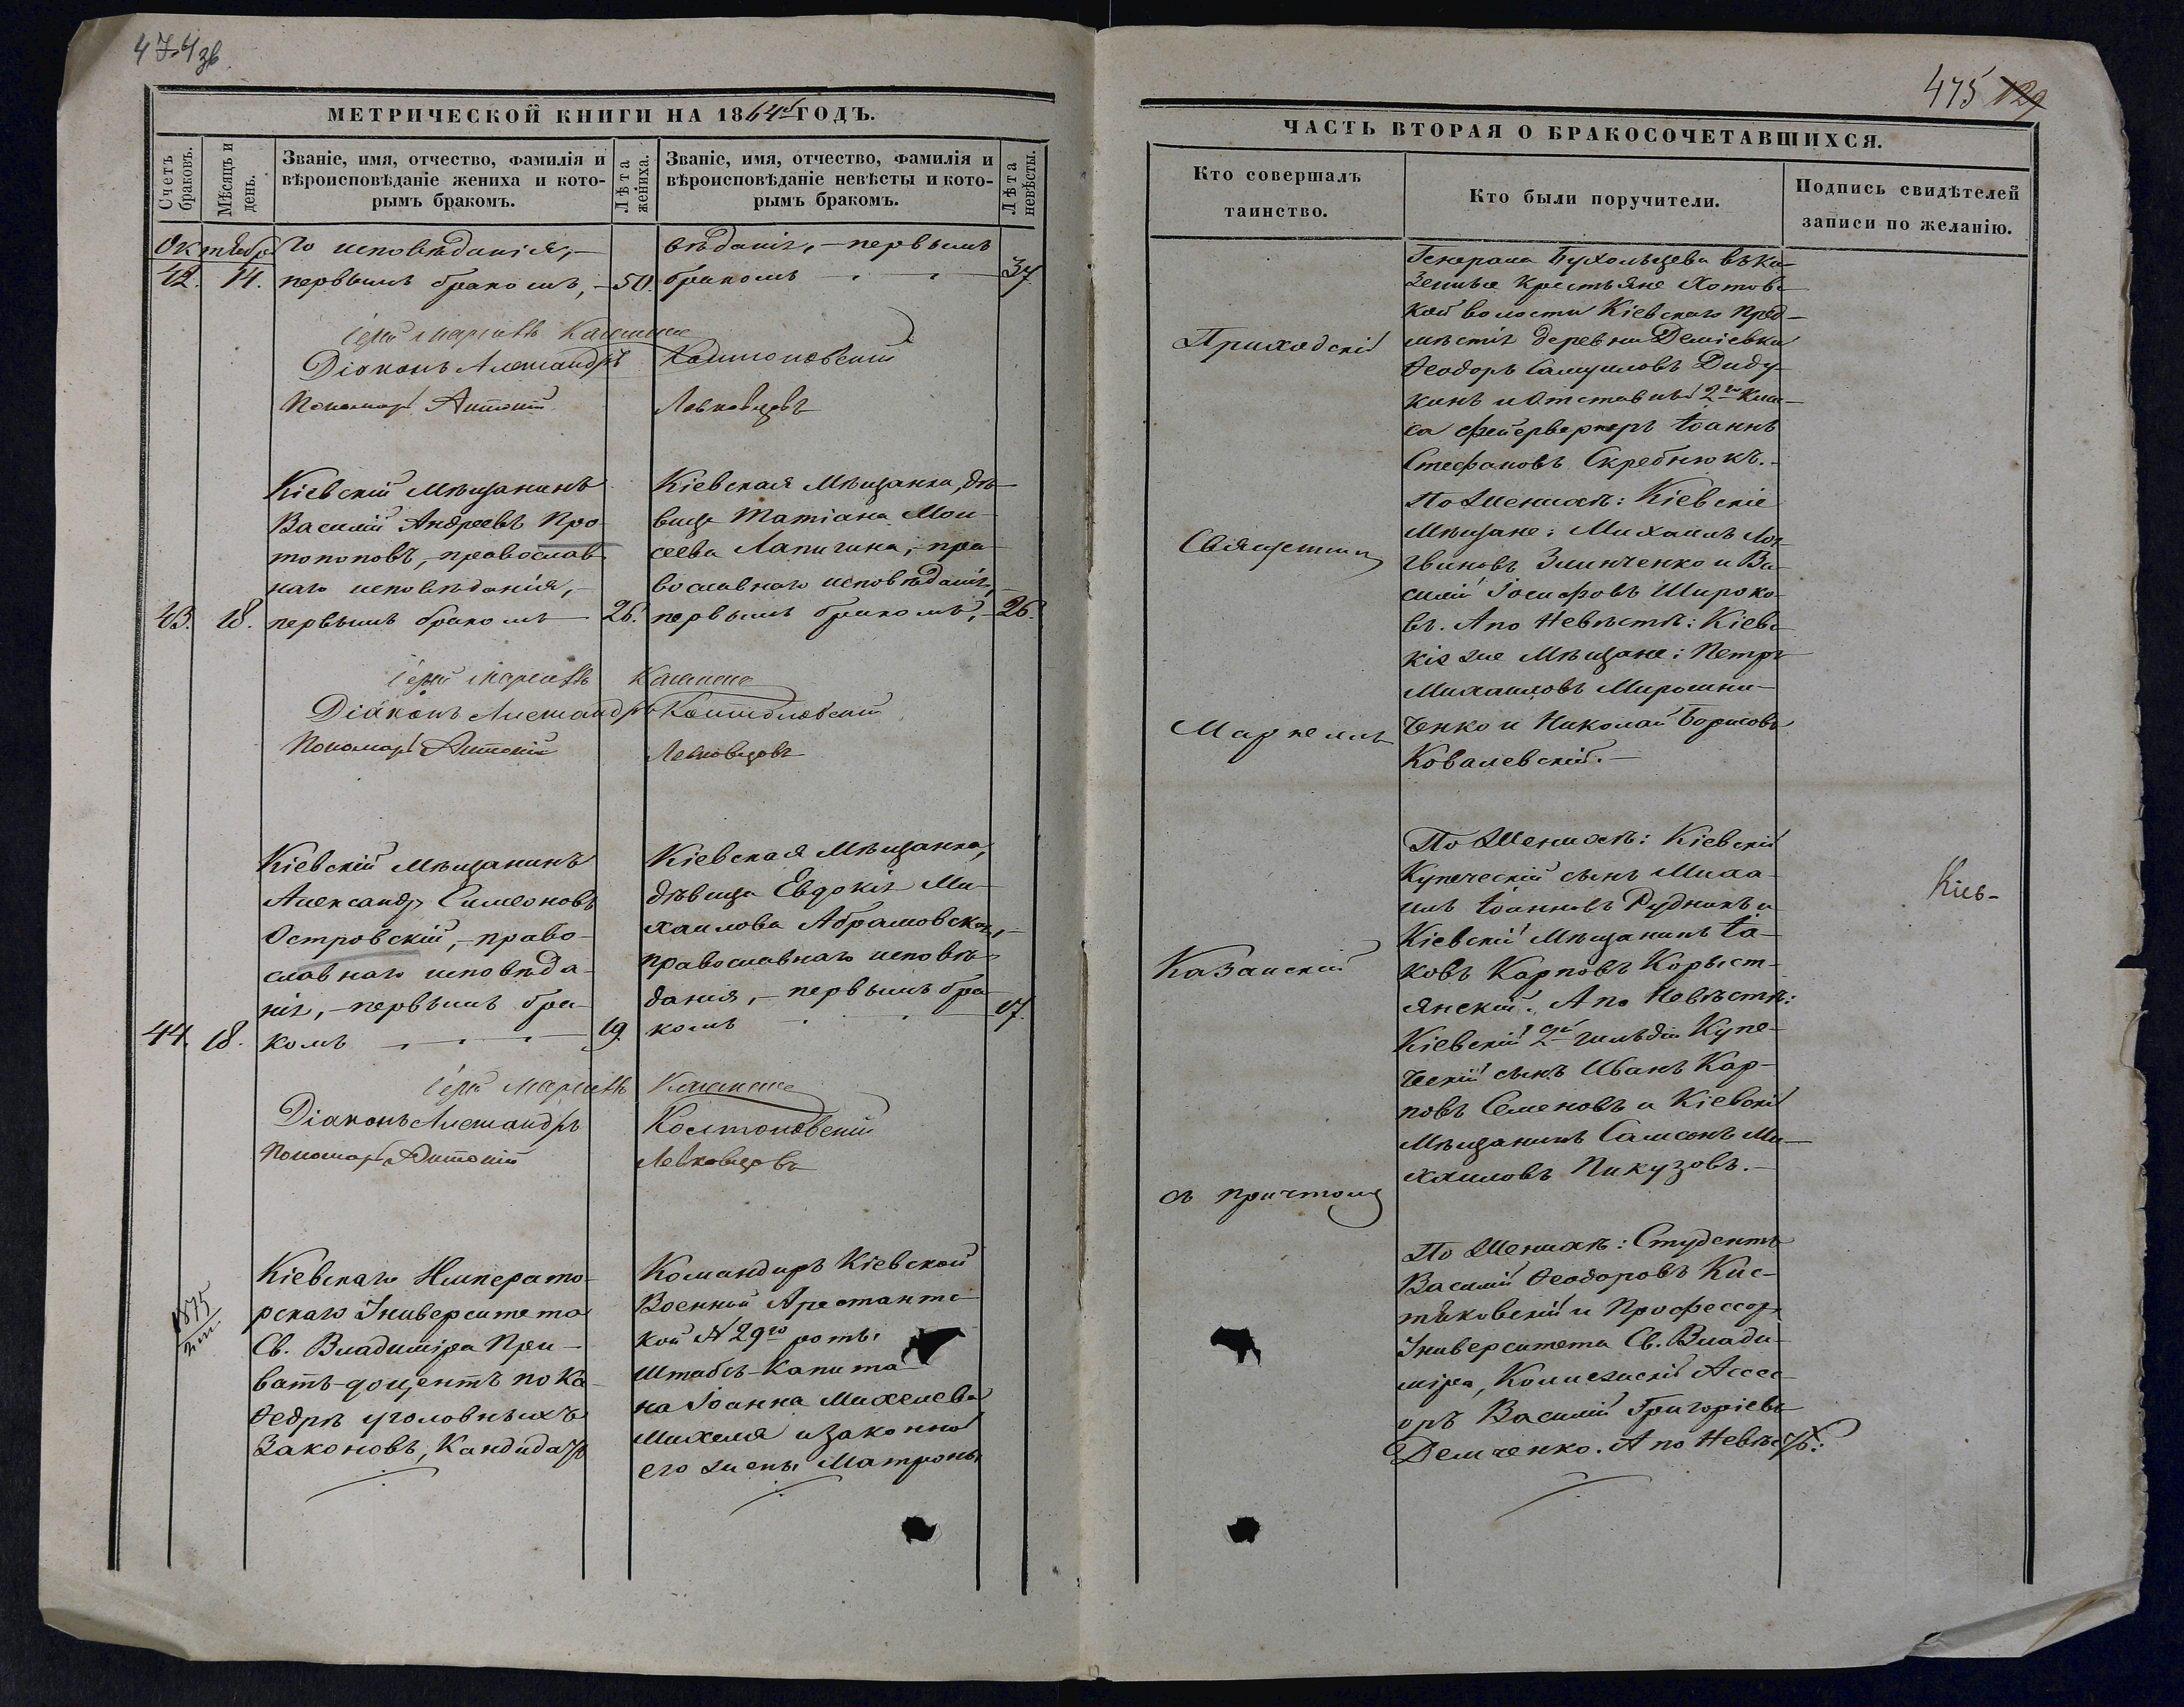 474 зв
МЕТРИЧЕСКОЙ КНИГИ НА 1864й ГОДЪ.
Счетъ браковъ.
Мѣсяцъ и день.
Званіе, имя, отчество, фамилія и
вѣроисповѣданіе жениха и кото-
рымъ бракомъ.
Лѣта жениха.
Званіе, имя, отчество, фамилія и
вѣроисповѣданіе невѣсты и кото-
рымъ бракомъ.
Лѣта невѣсты.
Октябрь
го исповѣданія,–
42. 14. первымъ бракомъ,– 50.
вѣданія,– первымъ
бракомъ 37
Іерей Маркеллъ
Діаконъ Александръ Колтоновскій
Пономарь Антоній Левковцовъ
Кіевскій Мѣщанинъ
Василій Андреевъ Про-
топоповъ,– православ-
наго исповѣданія,–
43. 18. первымъ бракомъ – 26.
Кіевская Мѣщанка, дѣ-
вица Татіана Мои-
сеева Лапигина,– пра-
вославнаго исповѣданія,–
первымъ бракомъ,– 26.
Іерей Маркеллъ
Діаконъ Александръ Колтоновскій
Пономарь Антоній Левковцовъ
Кіевскій Мѣщанинъ
Александръ Симеоновъ
Островскій,– право-
славнаго исповѣда-
нія,– первымъ бра-
44. 18. комъ 19.
Кіевская Мѣщанка,
дѣвица Евдокія Ми-
хаилова Абрамовская,–
православнаго исповѣ-
данія,– первымъ бра-
комъ 17.
Іерей Маркеллъ
Діаконъ Александръ Колтоновскій
Пономарь Антоній Левковцовъ
1875
Кіевскаго Императо-
рскаго Университета
Св. Владиміра При-
ватъ-доцентъ по Ка-
ѳедрѣ уголовныхъ
Законовъ, Кандидатъ
Командиръ Кіевской
Военной Арестантс-
кой № 29го роты
Штабсъ-Капита-
на Іоанна Михелева
Михеля и законной
его жены Матроны
475 129
ЧАСТЬ ВТОРАЯ О БРАКОСОЧЕТАВШИХСЯ.
Кто совершалъ
таинство.
Кто были поручители.
Подпись свидѣтелей
записи по желанію.
Приходскій
Священникъ
Маркеллъ
Казанскій
съ причтомъ
Генерала Бухольцева въ ка-
зенные крестьяне Хотовс-
кой волости Кіевскаго Пред-
мѣстія деревни Деміевки
Ѳеодоръ Самуиловъ Диду-
кинъ и Отставный 2го Клас-
са фейерверкеръ Іоаннъ
Стефановъ Скребнюкъ.–
По Женихѣ: Кіевскіе
Мѣщане: Михаилъ Лог-
виновъ Зинченко и Ва-
силій Іосифовъ Широко-
въ. А по Невѣстѣ: Кіевс-
кіе же Мѣщане: Петръ
Михаиловъ Мирошни-
ченко и Николай Борисовъ
Ковалевскій.–
По Женихѣ: Кіевскій
Купеческій сынъ Миха-
илъ Іоанновъ Рудникъ и
Кіевскій Мѣщанинъ Іа-
ковъ Карповъ Корыст-
янскій. А по Невѣстѣ:
Кіевскій 2й гильдіи Купе-
ческій сынъ Иванъ Кар-
повъ Семеновъ и Кіевскій
Мѣщанинъ Самсонъ Ми-
хаиловъ Пикузовъ.–
По Женихѣ: Студентъ
Василій Ѳеодоровъ Кис-
тяковскій и Профессоръ
Университета Св. Влади-
міра, Коллежскій Ассес-
оръ Василій Григоріевъ
Демченко. А по Невѣстѣ:
Кіев-